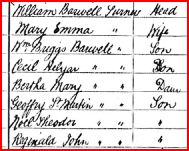 William Barwell Turner Head
Mary Emma " " Wife
Wm Briggs Barwell " Son
Cecil Helyar " " Son
Bertha Mary " " Daur
Geoffry St Martin " Son
Noel Theodor " " "
Reginald John " " "